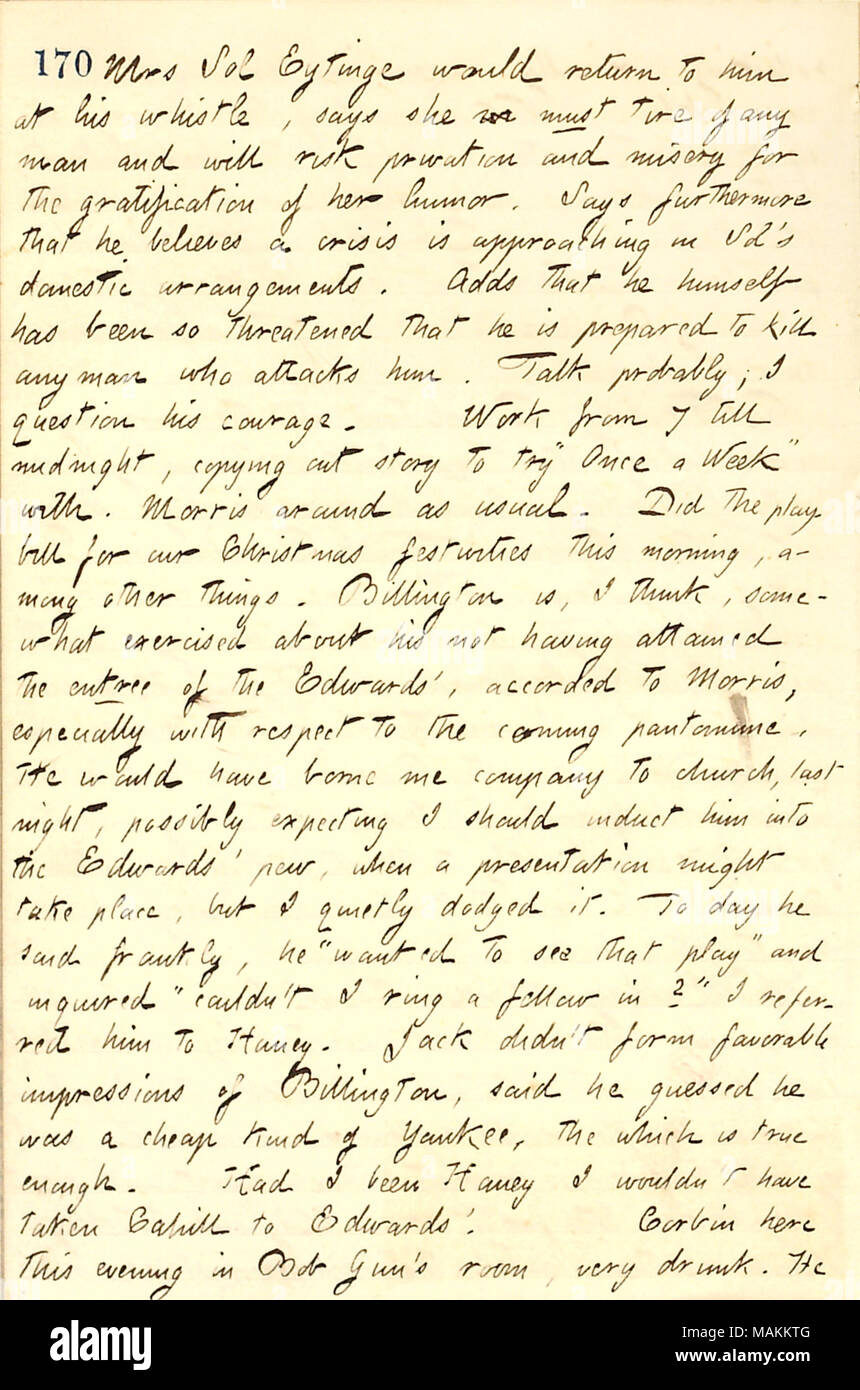 170 Mrs Sol Eytinge would return to him
at his whistle, says she must tire of any
man and will risk privation and misery for
the gratification of her humor. Says furthermore
that he believes a crisis is approaching in Sol's
domestic arrangements. Adds that he himself
has been so threatened that he is prepared to kill
any man who attacks him. Talk probably; I
question his courage. Work from 7 till
midnight, copying out story to try "Once a Week"
with. Morris around as usual. Did the play
bill for our Christmas festivities this morning, a-
mong other things. Billington is, I think, some-
what exercised about his not having attained
the entree of the Edwards', accorded to Morris,
especially with respect to the coming pantomime.
He would have borne me company to church, last
night, possibly expecting I should induct him into
the Edwards' pew, when a presentation might
take place, but I quietly dodged it. To day he
said frankly, he "wanted to see that play" and
inquired "couldn't I ring a fellow in?" I refer-
red him to Haney. Jack didn't form favorable
impressions of Billington, said he guessed he
was a cheap kind of Yankee, the which is true
enough. Had I been Haney I wouldn't have
taken Cahill to Edwards'. Corbin here
this evening in Bob Gun's room, very drunk. He
alamy
Image ID: MAKKTG
www.alamy.com